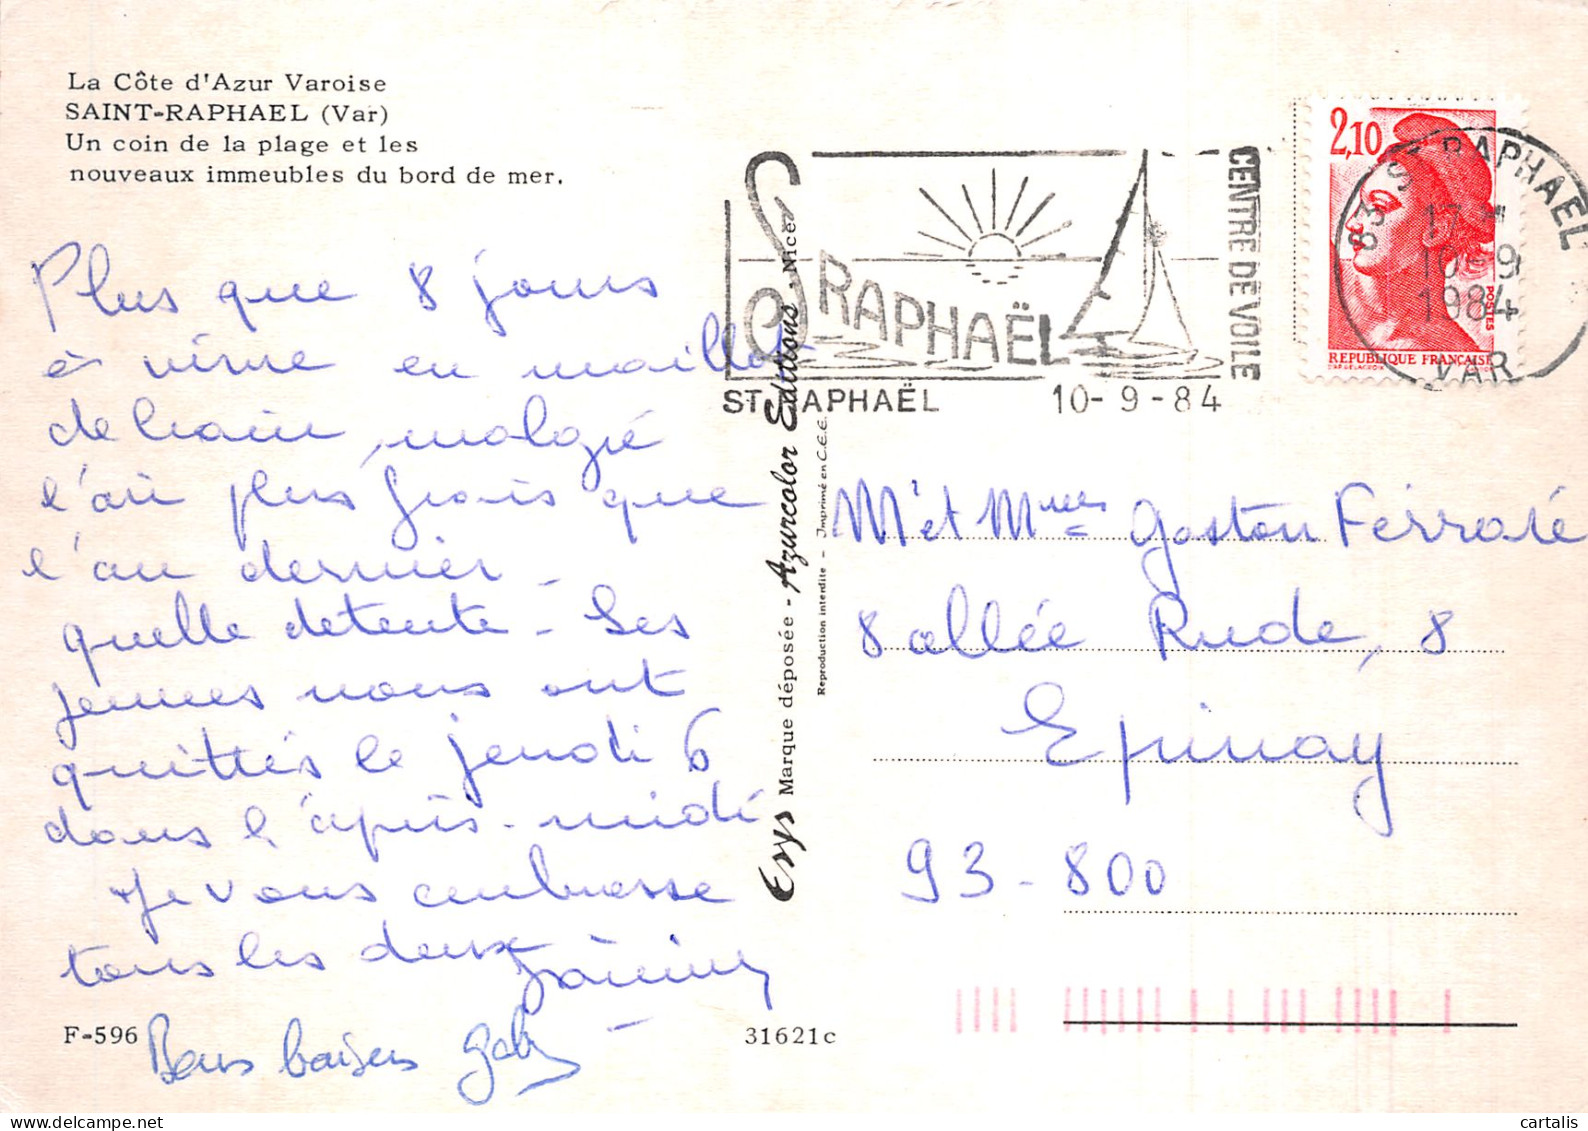 La Côte d'Azur Varoise
SAINT-RAPHAEL (Var)
Un coin de la plage et les
nouveaux immeubles du bord de mer.
Plus que 8 jours
à vivre en maillot
de bain, malgré
l'air plus frais que
l'an dernier -
quelle détente - Les
jeunes nous ont
quittés le jeudi 6
dans l'après-midi
Je vous embrasse
tous les deux
Bons baisers Gaby
F-596
31621c
Erys Marque déposée - Azurcolor Editions - Nice
Reproduction interdite - Imprimé en C.E.E.
ST RAPHAËL
CENTRE DE VOILE
ST RAPHAËL 10-9-84
2,10
POSTES
REPUBLIQUE FRANÇAISE
83 ST RAPHAEL
17 H
10-9
1984
VAR
Mr et Mme Gaston Ferraté
8 allée Rude, 8
Epinay
93-800
cartalis
delcampe.net